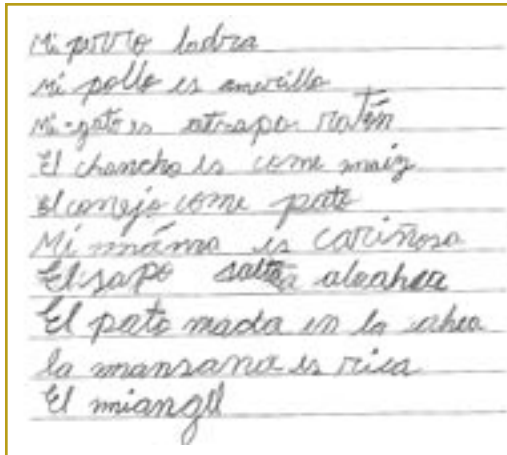 Mi perro ladra
Mi pollo es amerillo
Mi gato es atrapa ratón
El chancho es come maiz
El conejo come pato
Mi máma es cariñosa
El sapo salta
El pato mada en la ahea
la mansana es rica
El miangel